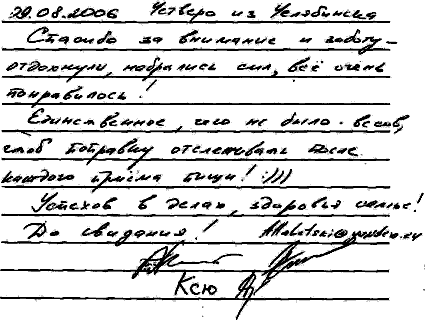 29.08.2006 Четверо из Челябинска
Спасибо за внимание и заботу –
отдохнули, набрались сил, всё очень
понравилось!
Единственное, чего не было - весов,
чтоб поправку отслеживать после
каждого приёма пищи! :)))
Успехов в делах, здоровья
До свидания!
Ксю